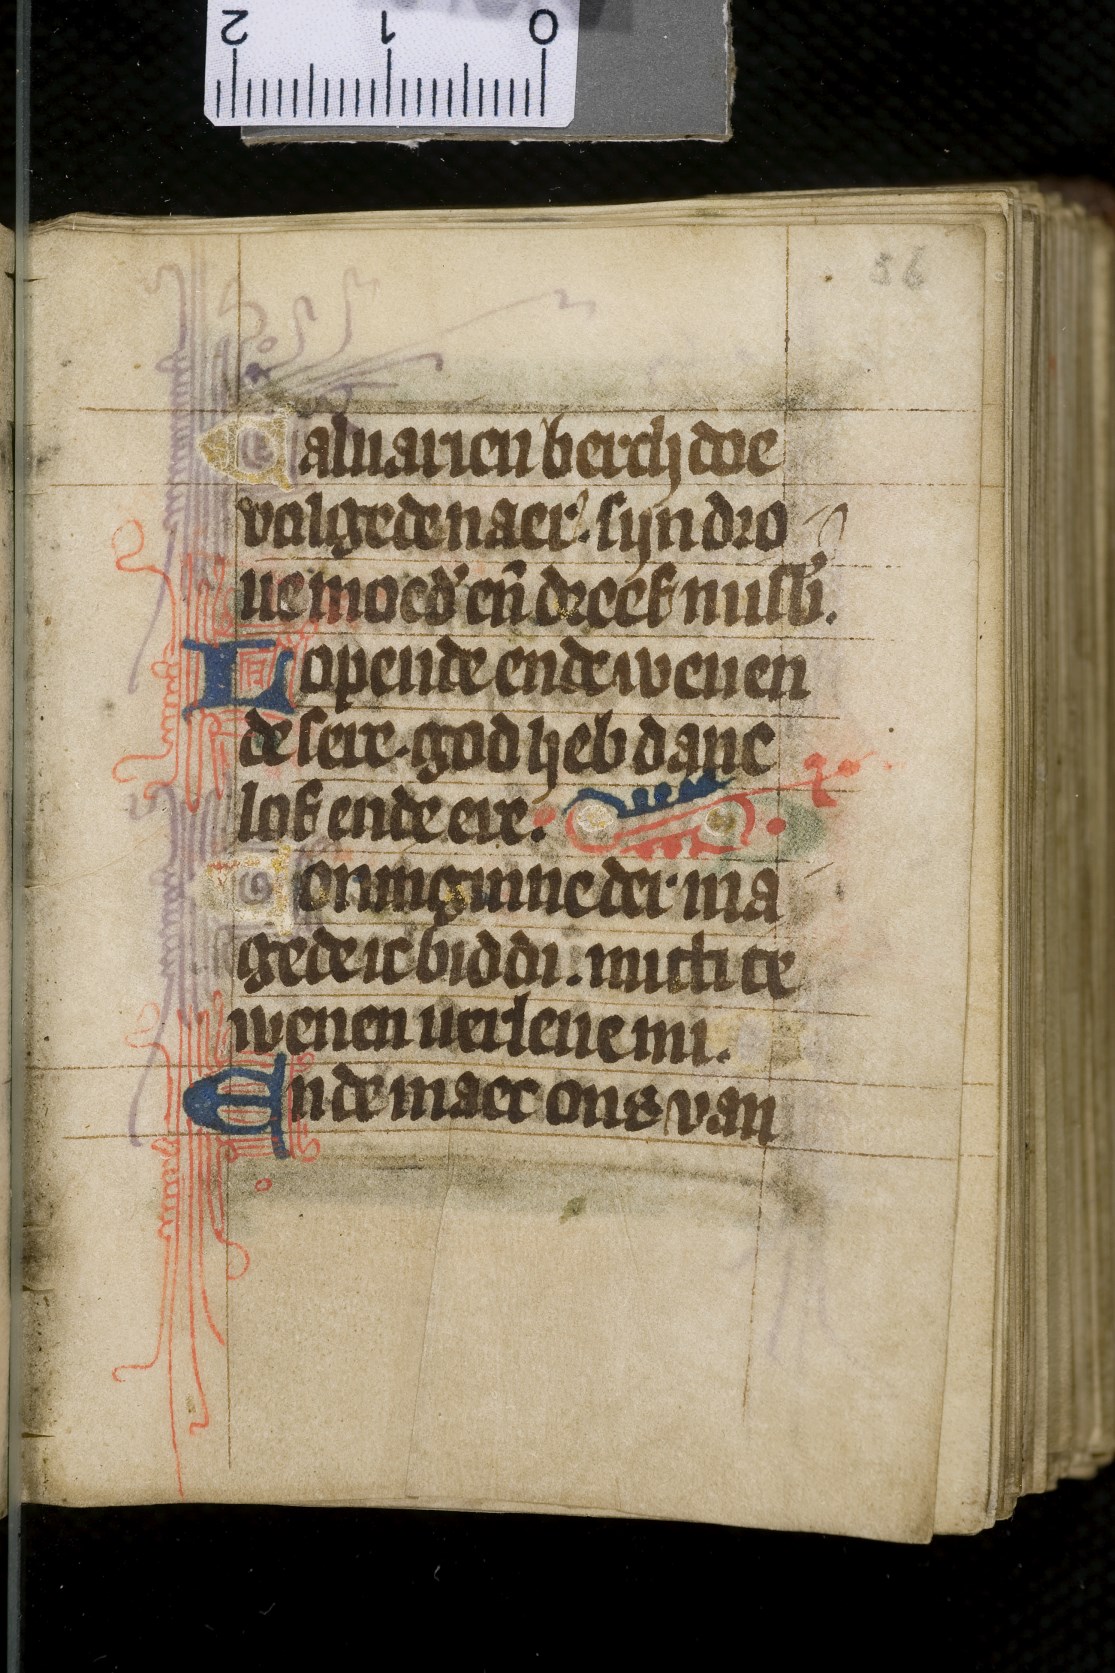 2 1 0
56
Caluarien berch doe
volgede naer. sijn dro
ue moed' en̄ dreef misb'.
Lopende ende wenen
de sere. god heb danc
lof ende ere.
Coninginne der ma
gede ic bid di. mitti te
wenen uerleue mi.
Ende maect ons van